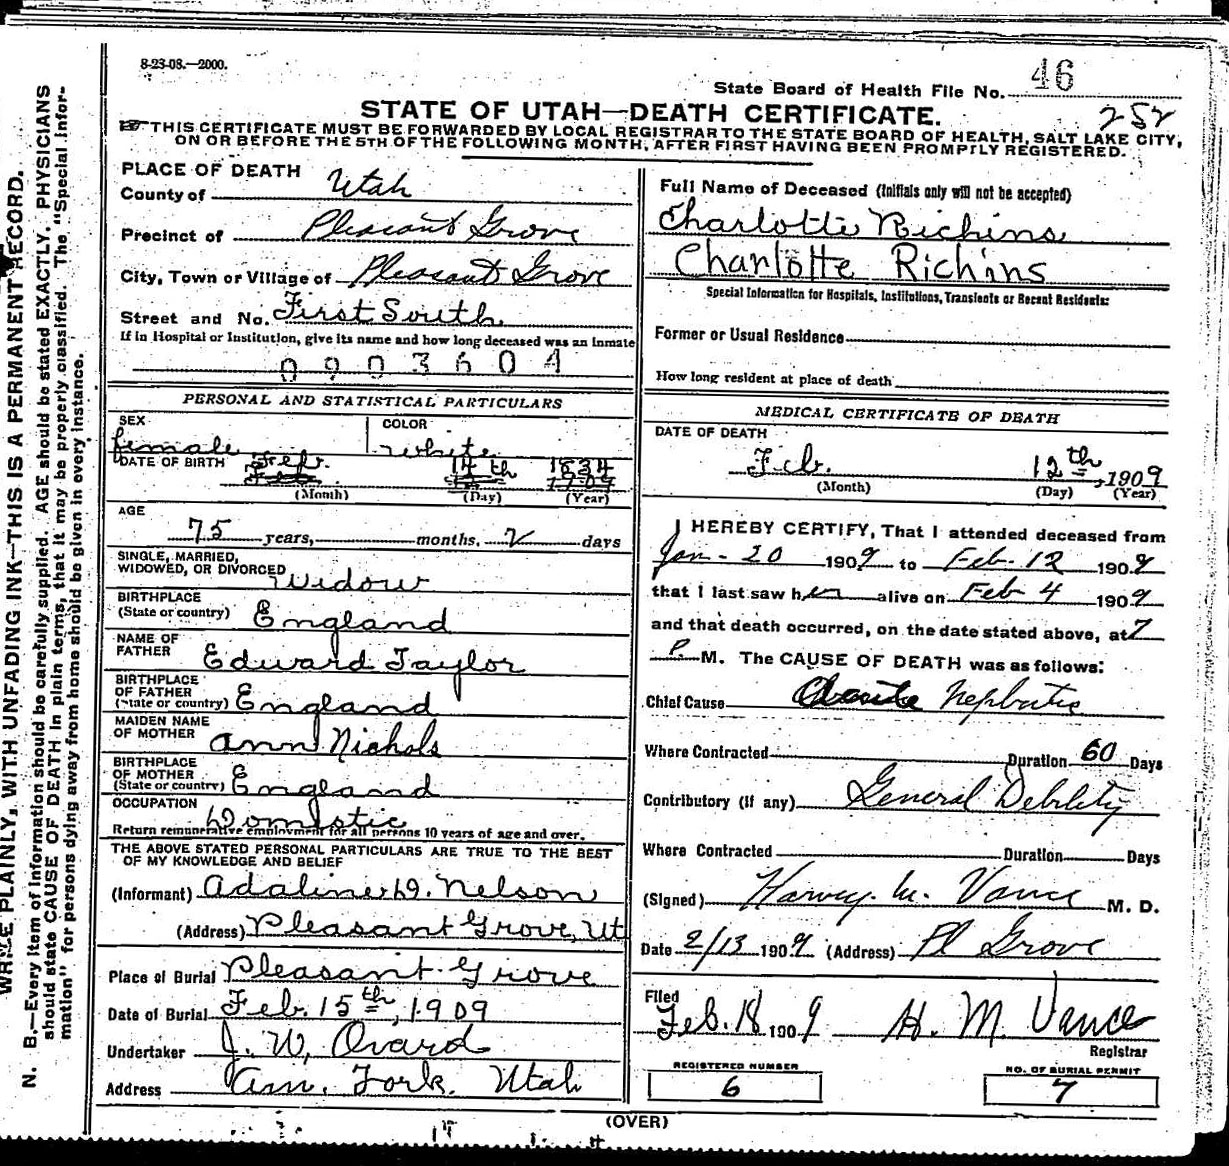 8-23-08.—2000.
State Board of Health File No. 46
STATE OF UTAH—DEATH CERTIFICATE.
252
THIS CERTIFICATE MUST BE FORWARDED BY LOCAL REGISTRAR TO THE STATE BOARD OF HEALTH, SALT LAKE CITY,
ON OR BEFORE THE 5TH OF THE FOLLOWING MONTH, AFTER FIRST HAVING BEEN PROMPTLY REGISTERED.
WRITE PLAINLY, WITH UNFADING INK—THIS IS A PERMANENT RECORD.
N. B.—Every item of information should be carefully supplied. AGE should be stated EXACTLY. PHYSICIANS
should state CAUSE OF DEATH in plain terms, that it may be properly classified. The "Special Infor-
mation" for persons dying away from home should be given in every instance.
PLACE OF DEATH
County of Utah
Precinct of Pleasant Grove
City, Town or Village of Pleasant Grove
Street and No. First South
If in Hospital or Institution, give its name and how long deceased was an inmate
0903604
PERSONAL AND STATISTICAL PARTICULARS
SEX female
COLOR white
DATE OF BIRTH Feb. 14th 1834
(Month) (Day) (Year)
AGE
75 years, months, 2 days
SINGLE, MARRIED,
WIDOWED, OR DIVORCED Widow
BIRTHPLACE
(State or country) England
NAME OF
FATHER Edward Taylor
BIRTHPLACE
OF FATHER
(State or country) England
MAIDEN NAME
OF MOTHER Ann Nichols
BIRTHPLACE
OF MOTHER
(State or country) England
OCCUPATION Domistic
Return remunerative employment for all persons 10 years of age and over.
THE ABOVE STATED PERSONAL PARTICULARS ARE TRUE TO THE BEST
OF MY KNOWLEDGE AND BELIEF
(Informant) Adaline D. Nelson
(Address) Pleasant Grove, Ut
Place of Burial Pleasant Grove
Date of Burial Feb. 15th, 1909
Undertaker J. W. Ovard
Address Am. Fork. Utah
Full Name of Deceased (Initials only will not be accepted)
Charlotte Richins
Charlotte Richins
Special Information for Hospitals, Institutions, Transients or Recent Residents:
Former or Usual Residence
How long resident at place of death
MEDICAL CERTIFICATE OF DEATH
DATE OF DEATH
Feb. 12th, 1909
(Month) (Day) (Year)
I HEREBY CERTIFY, That I attended deceased from
Jan- 20 1909 to Feb- 12 1909
that I last saw her alive on Feb 4 1909
and that death occurred, on the date stated above, at 7
P. M. The CAUSE OF DEATH was as follows:
Chief Cause Nephritis
Where Contracted Duration 60 Days
Contributory (if any) General Debility
Where Contracted Duration Days
(Signed) Harvey M. Vance M. D.
Date 2/13 1909 (Address) Pl Grove
Filed
Feb. 18 1909 H. M. Vance
Registrar
REGISTERED NUMBER
6
NO. OF BURIAL PERMIT
7
(OVER)